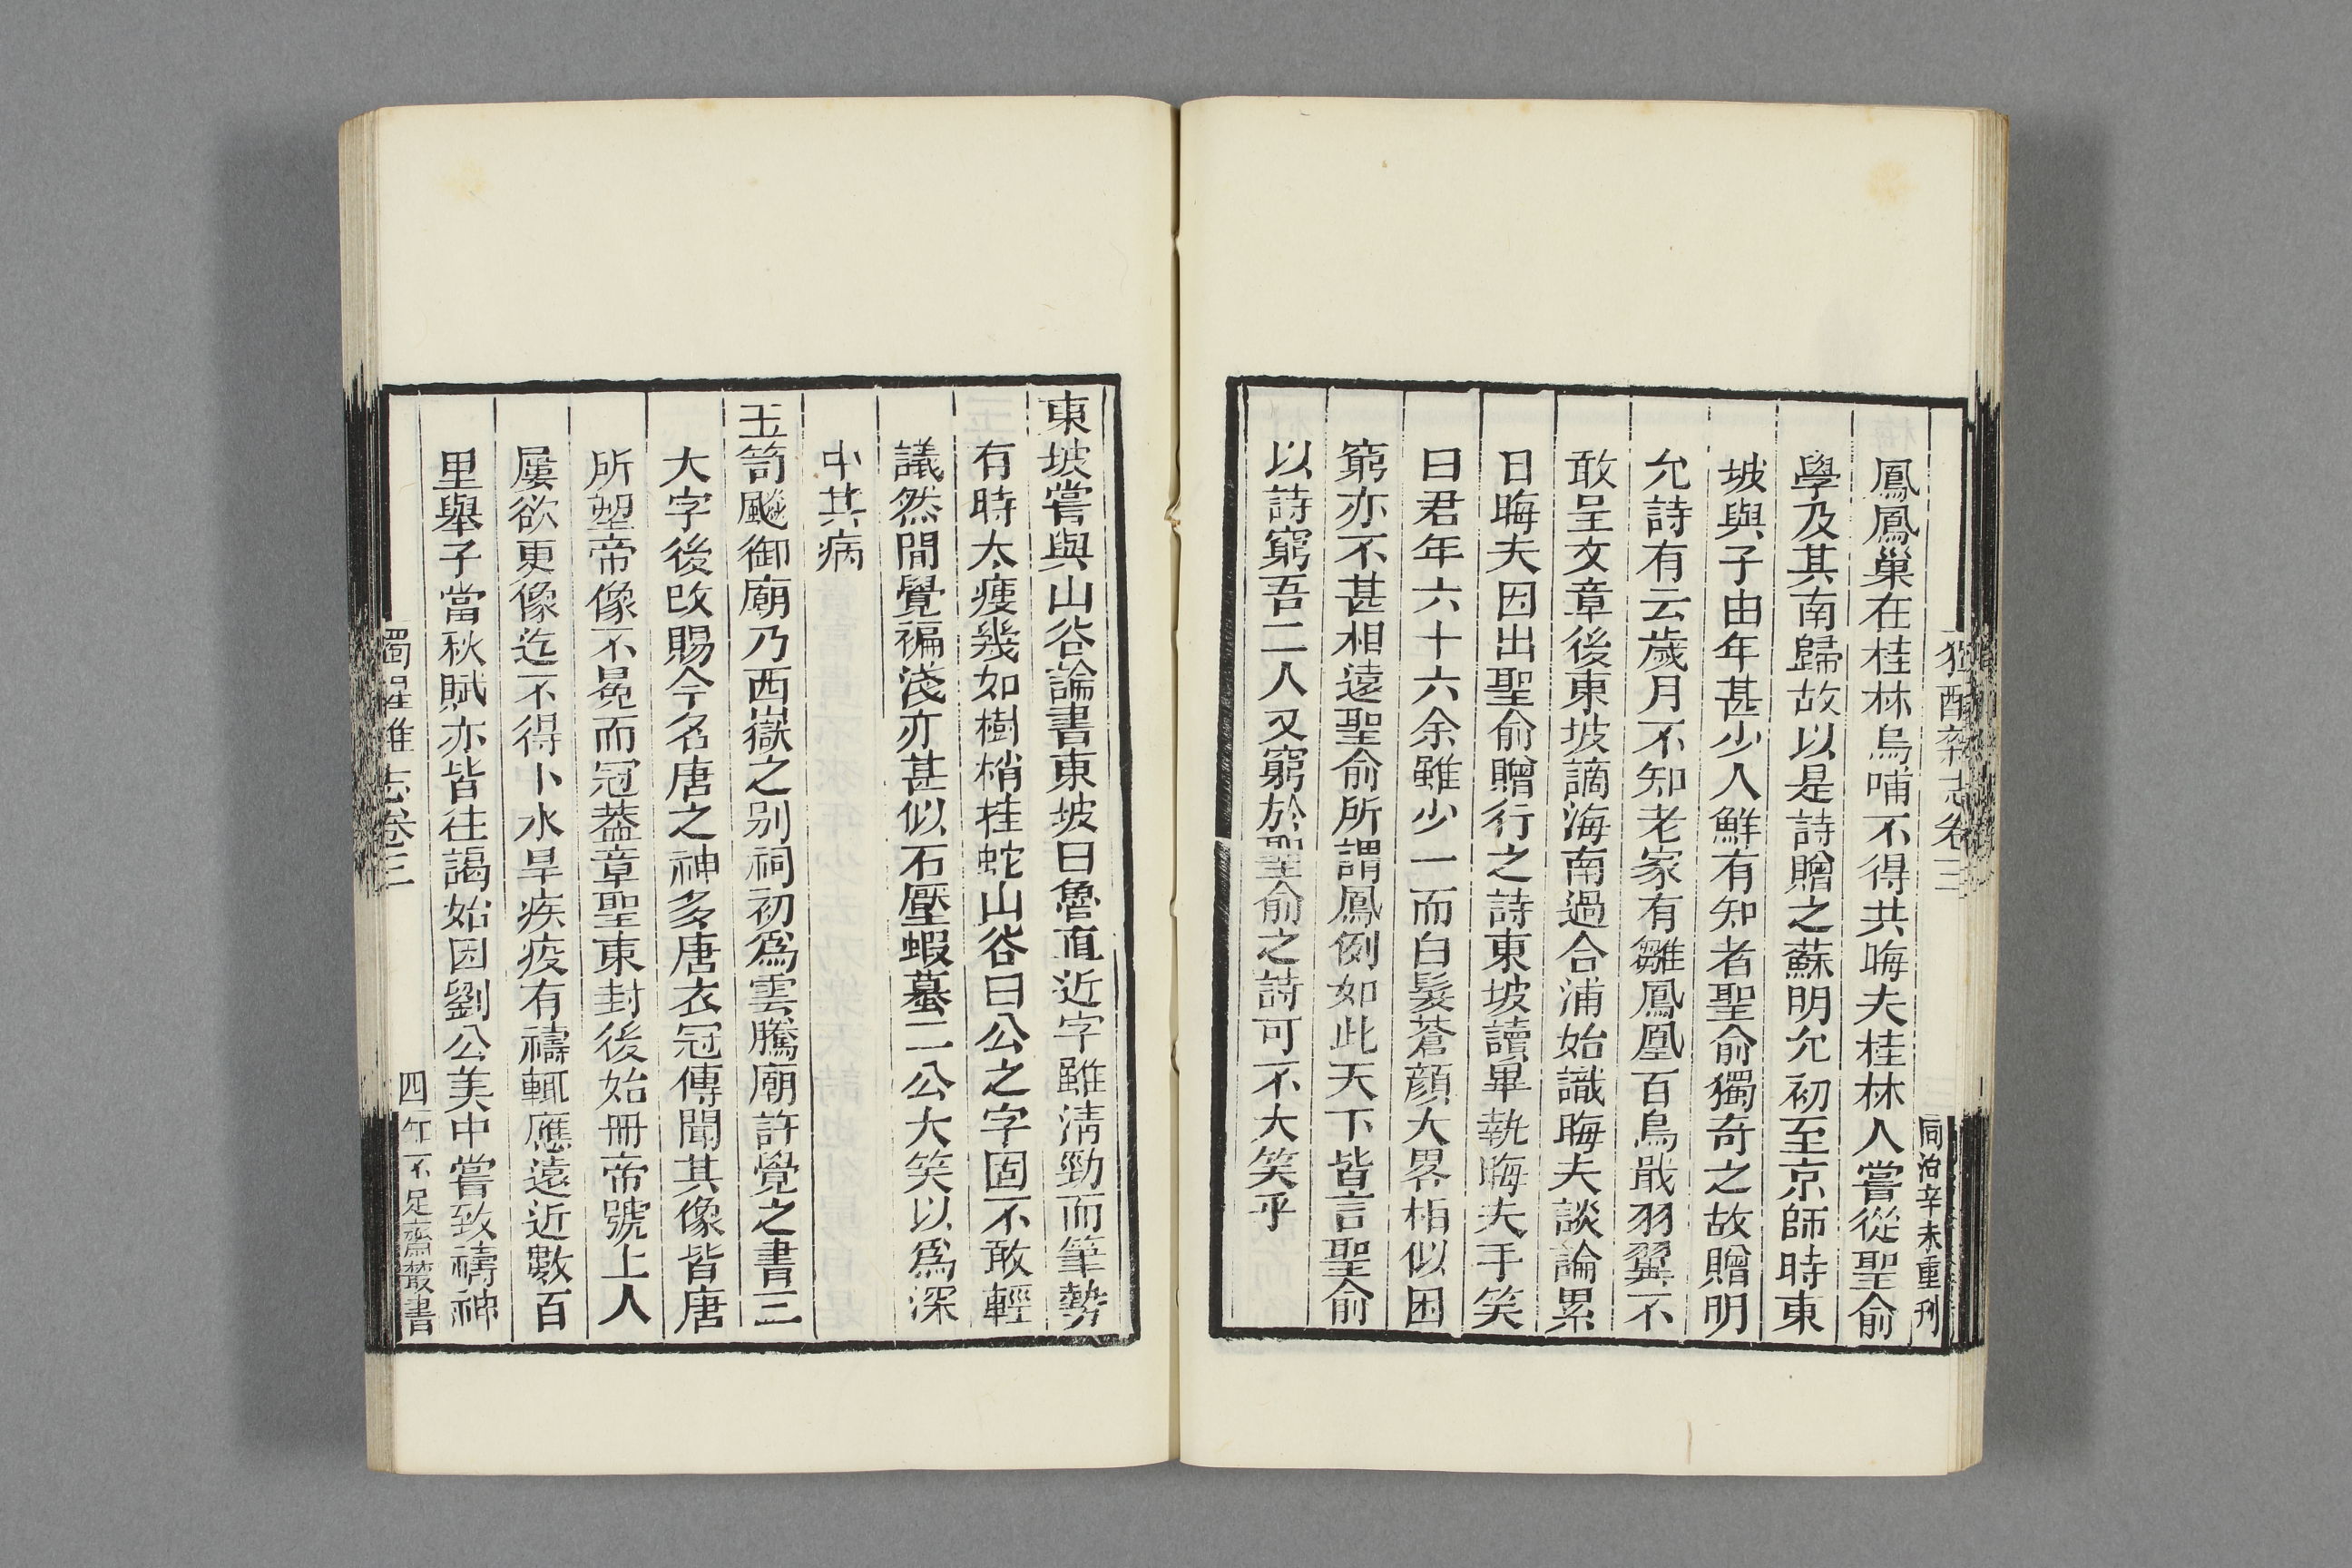 鳳鳳巢在桂林烏哺不得共晦夫桂林人嘗從聖俞
學及其南歸故以是詩贈之蘇明允初至京師時東
坡與子由年甚少人鮮有知者聖俞獨奇之故贈明
允詩有云歲月不知老家有雛鳳凰百鳥戢羽翼不
敢呈文章後東坡謫海南過合浦始識晦夫談論累
日晦夫因出聖俞贈行之詩東坡讀畢執晦夫手笑
曰君年六十六余雖少一而白髮蒼顏大畧相似困
窮亦不甚相遠聖俞所謂鳳例如此天下皆言聖俞
以詩窮吾二人又窮於聖俞之詩可不大笑乎
同治辛未重刊
東坡嘗與山谷論書東坡曰魯直近字雖淸勁而筆勢
有時太瘦幾如樹梢挂蛇山谷曰公之字固不敢輕
議然間覺褊淺亦甚似石壓蝦蟇二公大笑以爲深
中其病
玉笥颷御廟乃西嶽之别祠初爲雲騰廟許覺之書三
大字後改賜今名唐之神多唐衣冠傳聞其像皆唐
所塑帝像不冕而冠葢章聖東封後始冊帝號上人
屢欲更像迄不得卜水旱疾疫有禱輒應遠近數百
里舉子當秋賦亦皆往謁始因劉公美中嘗致禱神
志卷三
四 不足齋叢書